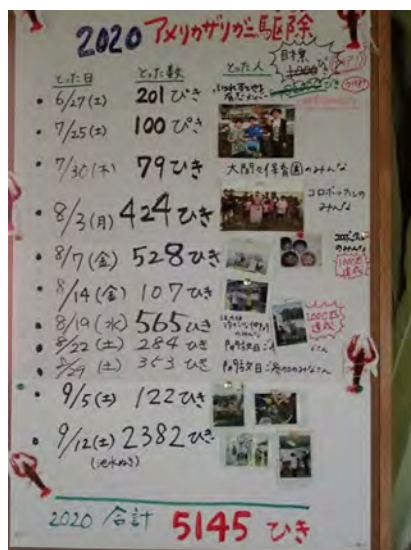 2020 アメリカザリガニ駆除
とった日 とった数 とった人
目標
1000ひき
• 6/27(土) 201 ぴき
• 7/25(土) 100 ぴき
• 7/30(木) 79 ひき 大間々保育園のみんな
• 8/3(月) 424 ひき コロボックルのみんな
• 8/7(金) 528 ひき コロボックルのみんな
1000匹達成
• 8/14(金) 107 ひき
• 8/19(水) 565 ひき 2000匹達成
• 8/22(土) 284 ひき
• 8/29(土) 353 ひき
• 9/5(土) 122 ひき
• 9/12(土) 2382 ひき
(池水ぬき)
2020 合計 5145 ひき